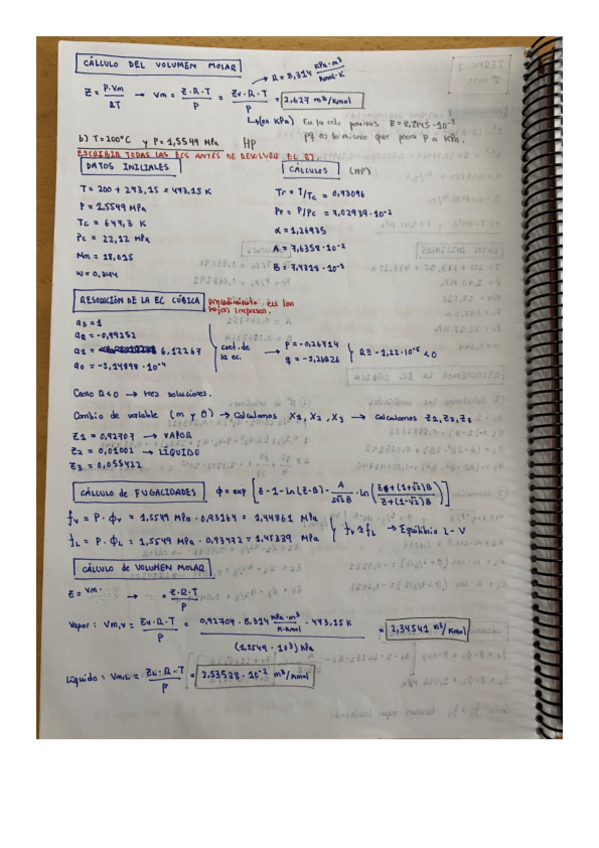 CÁLCULO DEL VOLUMEN MOLAR
R = 8,314 kPa·m³/Kmol·K
Z = P·Vm/RT → Vm = Z·R·T/P = Zv·R·T/P = 2,627 m³/Kmol
↳(en KPa) En la calc ponemos R = 8,2145·10⁻³
pq es lo mismo que pasar P a KPa.
b) T=200°C y P = 1,5549 MPa HP
ESCRIBIR TODAS LAS ECS ANTES DE RESOLVER EL EJ
DATOS INICIALES
T = 200 + 273,15 = 473,15 K
P = 1,5549 MPa
Tc = 647,3 K
Pc = 22,12 MPa
Mm = 18,015
w = 0,344
CÁLCULOS (HP)
Tr = T/Tc = 0,73096
Pr = P/Pc = 7,02939·10⁻²
α = 1,26935
A = 7,6358·10⁻²
B = 7,4718·10⁻³
RESOLUCIÓN DE LA EC CÚBICA procedimiento en las
hojas impresas.
a3 = 1
a2 = -0,99252
a1 = 6,12267
a0 = -5,14898·10⁻⁴
coef. de
la ec. → P = -0,26714
q = -5,26826
R = -1,22·10⁻⁵ < 0
Como R<0 → tres soluciones.
Cambio de variable (m y θ) → Calculamos X1, X2, X3 → Calculamos Z1, Z2, Z3
Z1 = 0,92707 → VAPOR
Z2 = 0,01002 → LÍQUIDO
Z3 = 0,055422
CÁLCULO de FUGALIDADES ϕ = exp [Z-1-Ln(Z-B) - A/2√2B · Ln(Z+(1+√2)B/Z+(1-√2)B)]
fv = P·ϕv = 1,5549 MPa · 0,93164 = 1,44861 MPa
fL = P·ϕL = 1,5549 MPa · 0,93472 = 1,45339 MPa
fv ≃ fL → Equilibrio L-V
CÁLCULO de VOLUMEN MOLAR
Z = Vm· → = Z·R·T/P
Vapor: Vm,v = Zv·R·T/P = 0,92707 · 8,314 kPa·m³/K·kmol · 473,15K / (1,5549·10³) kPa = 2,34541 m³/Kmol
Líquido: Vm,L = ZL·R·T/P = 2,53528·10⁻² m³/Kmol